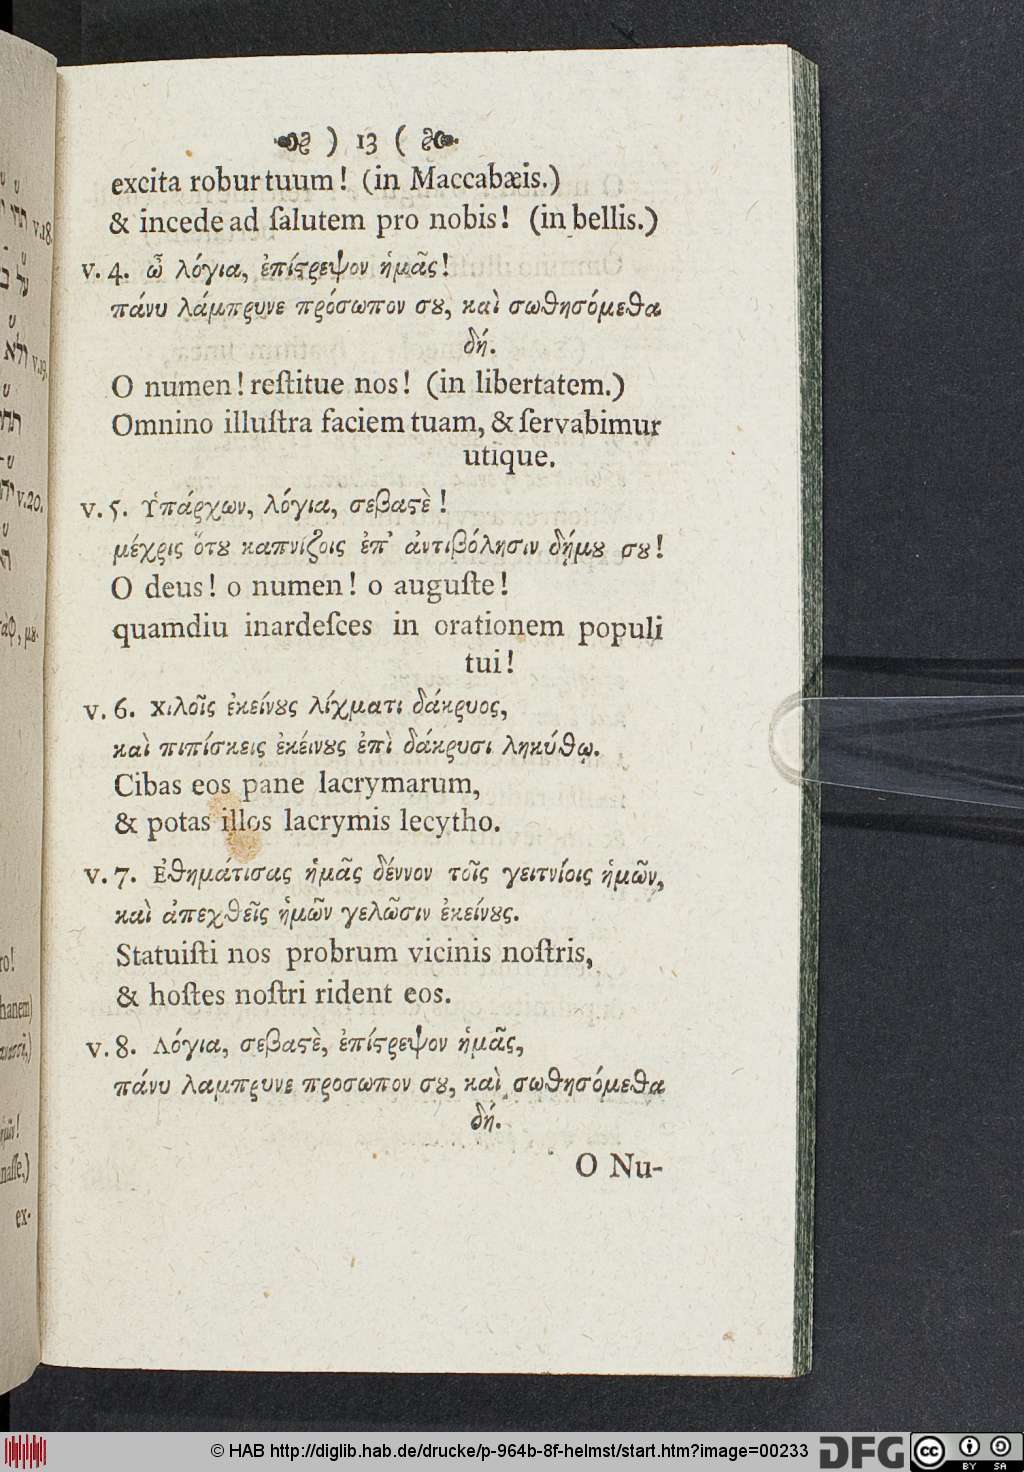 ) 13 (
excita robur tuum! (in Maccabæis.)
& incede ad ſalutem pro nobis! (in bellis.)
v. 4. ὦ λόγια, ἐπίϛρεψον ἡμᾶς!
πάνυ λάμπρυνε πρόσωπον σȣ, καὶ σωθησόμεθα
δή.
O numen! reſtitue nos! (in libertatem.)
Omnino illuſtra faciem tuam, & ſervabimur
utique.
v. 5. Ὑπάρχων, λόγια, σεβαϛὲ!
μέχρις ὅτȣ καπνίζοις ἐπ' ἀντιβόλησιν δήμȣ σȣ!
O deus! o numen! o auguſte!
quamdiu inardeſces in orationem populi
tui!
v. 6. Χιλοῖς ἐκείνȣς λίχματι δάκρυος,
καὶ πιπίσκεις ἐκέινȣς ἐπὶ δάκρυσι ληκύθῳ.
Cibas eos pane lacrymarum,
& potas illos lacrymis lecytho.
v. 7. Ἐθημάτισας ἡμᾶς δέννον τοῖς γειτνίοις ἡμῶν,
καὶ ἀπεχθεῖς ἡμῶν γελῶσιν ἐκείνȣς.
Statuiſti nos probrum vicinis noſtris,
& hoſtes noſtri rident eos.
v. 8. Λόγια, σεβαϛὲ, ἐπίϛρεψον ἡμᾶς,
πάνυ λαμπρυνε προσωπον σȣ, καὶ σωθησόμεθα
δή.
O Nu-
v.18.
v.19.
v.20.
ro!
hanem)
naſſe,)
ex-
© HAB http://diglib.hab.de/drucke/p-964b-8f-helmst/start.htm?image=00233
DFG
cc
BY SA